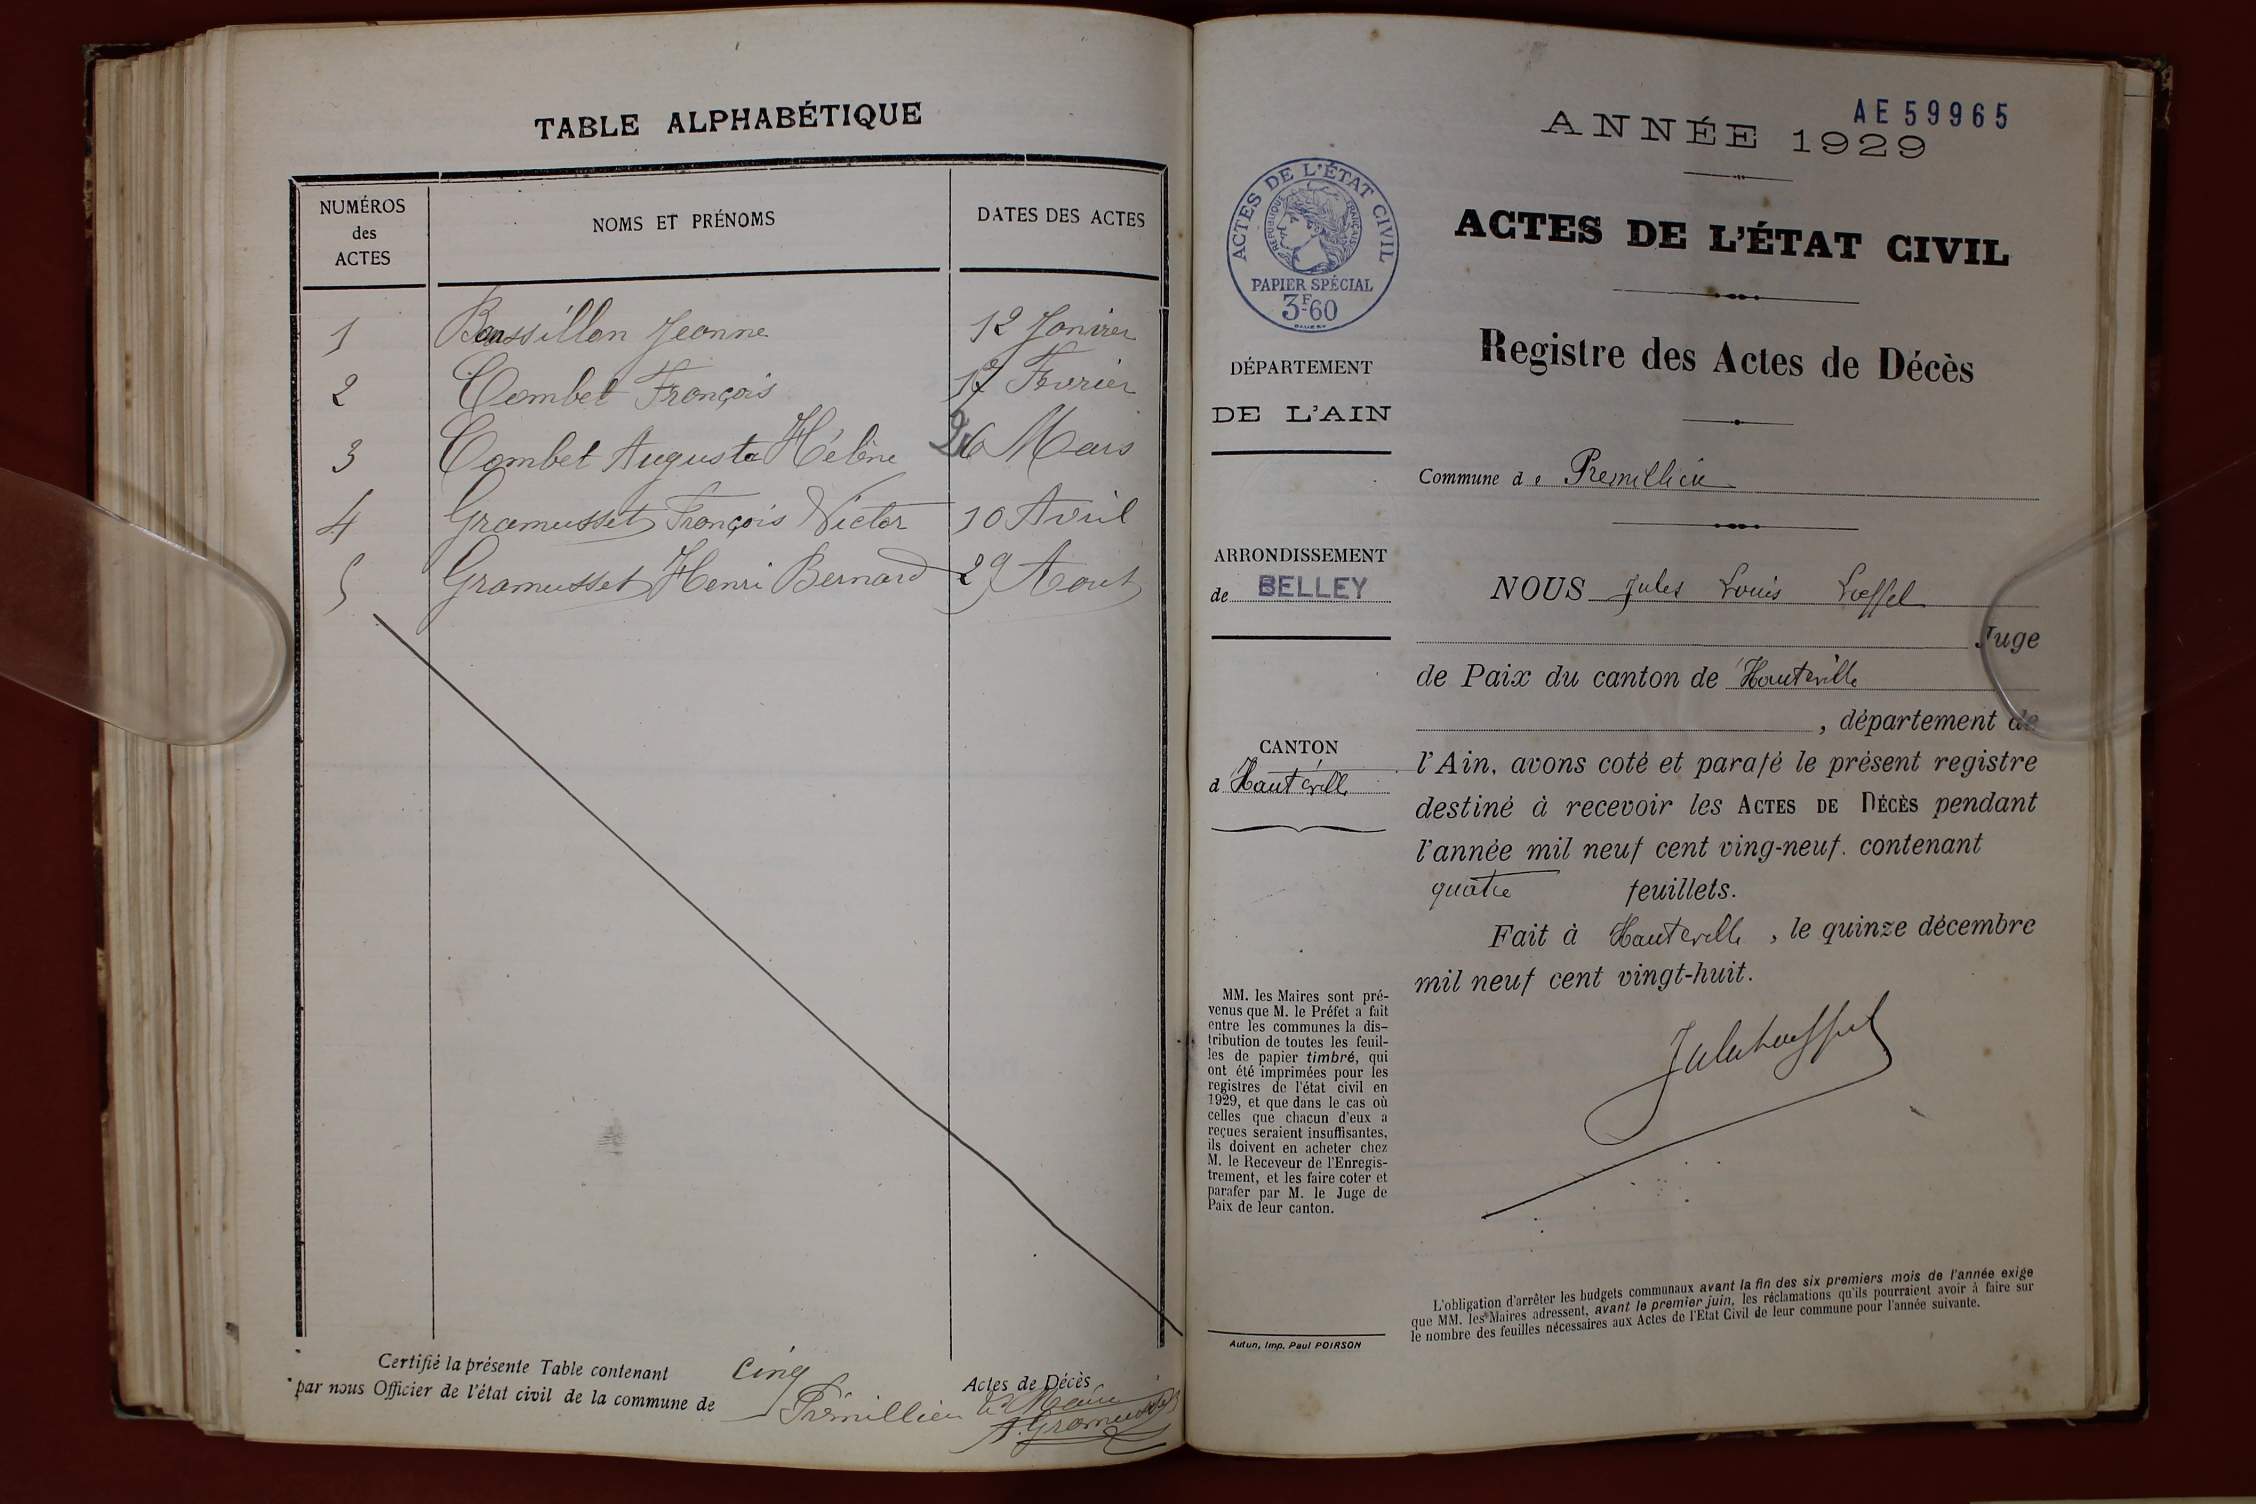 TABLE ALPHABÉTIQUE
NUMÉROS
des
ACTES
NOMS ET PRÉNOMS
DATES DES ACTES
1 Jeanne 12 Janvier
2 Combet François Février
3 Combet Augusta Hélène 26 Mars
4 Gramusset François Victor 10 Avril
5 Gramusset Henri Bernard 29 Aout
Certifié la présente Table contenant cinq Actes de Décès
par nous Officier de l'état civil de la commune de Prémillieu Le Maire
A. Gramusset
AE 59965
ANNÉE 1929
ACTES DE L'ÉTAT CIVIL
RÉPUBLIQUE FRANÇAISE
PAPIER SPÉCIAL
3F60
ACTES DE L'ÉTAT CIVIL
Registre des Actes de Décès
DÉPARTEMENT
DE L'AIN
Commune de Premillieu
ARRONDISSEMENT
de BELLEY
CANTON
d Hauteville
MM. les Maires sont pré-
venus que M. le Préfet a fait
entre les communes la dis-
tribution de toutes les feuil-
les de papier timbré, qui
ont été imprimées pour les
registres de l'état civil en
1929, et que dans le cas où
celles que chacun d'eux a
reçues seraient insuffisantes,
ils doivent en acheter chez
M. le Receveur de l'Enregis-
trement, et les faire coter et
parafer par M. le Juge de
Paix de leur canton.
Autun, Imp. Paul POIRSON
NOUS Jules Louis Lœffel
Juge
de Paix du canton de Hauteville
, département de
l'Ain, avons coté et parafé le présent registre
destiné à recevoir les ACTES DE DÉCÈS pendant
l'année mil neuf cent ving-neuf. contenant
quatre feuillets.
Fait à Hauteville, le quinze décembre
mil neuf cent vingt-huit.
Jules Lœffel
L'obligation d'arrêter les budgets communaux avant la fin des six premiers mois de l'année exige
que MM. les Maires adressent, avant le premier juin, les réclamations qu'ils pourraient avoir à faire sur
le nombre des feuilles nécessaires aux Actes de l'Etat Civil de leur commune pour l'année suivante.